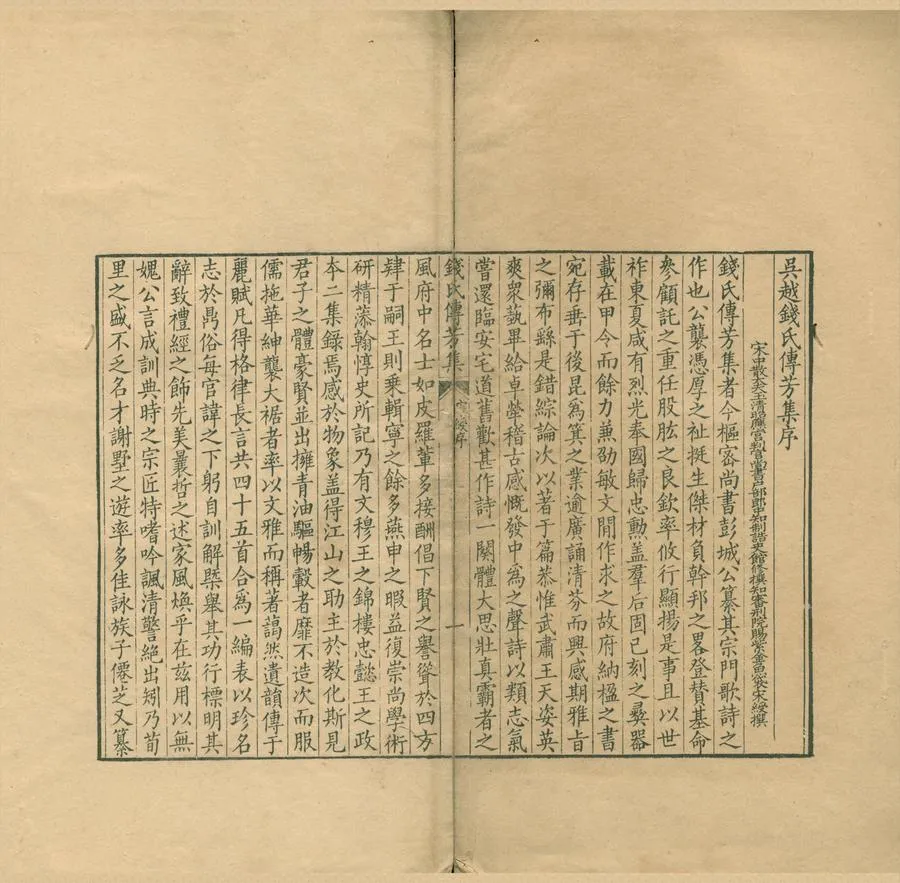 吳越錢氏傳芳集序
宋中散大夫玉清昭應宮判官尚書戶部郎中知制誥史館修撰知審刑院賜紫金魚袋宋綬撰
錢氏傳芳集者今樞密尚書彭城公纂其宗門歌詩之
作也公襲憑厚之祉挺生傑材負幹邦之畧登贊基命
參顧託之重任股肱之良欽率攸行顯揚是事且以世
祚東夏咸有烈光奉國歸忠勳盖羣后固已刻之彞器
載在甲令而餘力兼劭敏文閒作求之故府納楹之書
宛存垂于後昆為箕之業逾廣誦清芬而興感期雅旨
之彌布繇是錯綜論次以著于篇恭惟武肅王天姿英
爽衆藝畢給卓犖稽古感慨發中為之聲詩以類志氣
嘗還臨安宅道舊歡甚作詩一闋體大思壯真霸者之
錢氏傳芳集
宋綬序
一
風府中名士如皮羅輩多接酬倡下賢之譽聳於四方
肄于嗣王則乗輯寧之餘多燕申之暇益復崇尚學術
研精藻翰惇史所記乃有文穆王之錦樓忠懿王之政
夲二集錄焉感於物象盖得江山之助主於教化斯見
君子之體豪賢並出擁青油驅暢轂者靡不造次而服
儒拖華紳襲大裾者率以文雅而稱著藹然遺韻傳于
麗賦凡得格律長言共四十五首合為一編表以珍名
志於禺俗每官諱之下躬自訓解槩舉其功行標明其
辭致禮經之飾先美曩哲之述家風煥乎在兹用以無
媿公言成訓典時之宗匠特嗜吟諷清警絶出矧乃荀
里之盛不乏名才謝墅之遊率多佳詠族子僊芝又纂